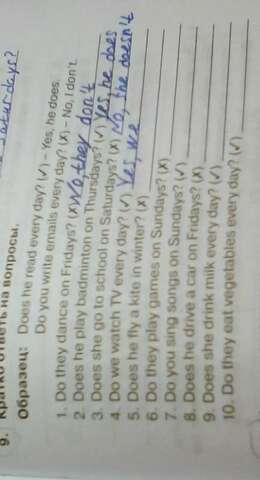 Saturdays?
9. Кратко ответь на вопросы.
Образец: Does he read every day? (✓) – Yes, he does.
Do you write emails every day? (X) – No, I don't.
1. Do they dance on Fridays? (X) No they don't
2. Does he play badminton on Thursdays? (✓) Yes he does
3. Does she go to school on Saturdays? (X) No, she doesn't
4. Do we watch TV every day? (✓) Yes, we
5. Does he fly a kite in winter? (X)
6. Do they play games on Sundays? (X)
7. Do you sing songs on Sundays? (✓)
8. Does he drive a car on Fridays? (X)
9. Does she drink milk every day? (✓)
10. Do they eat vegetables every day? (✓)